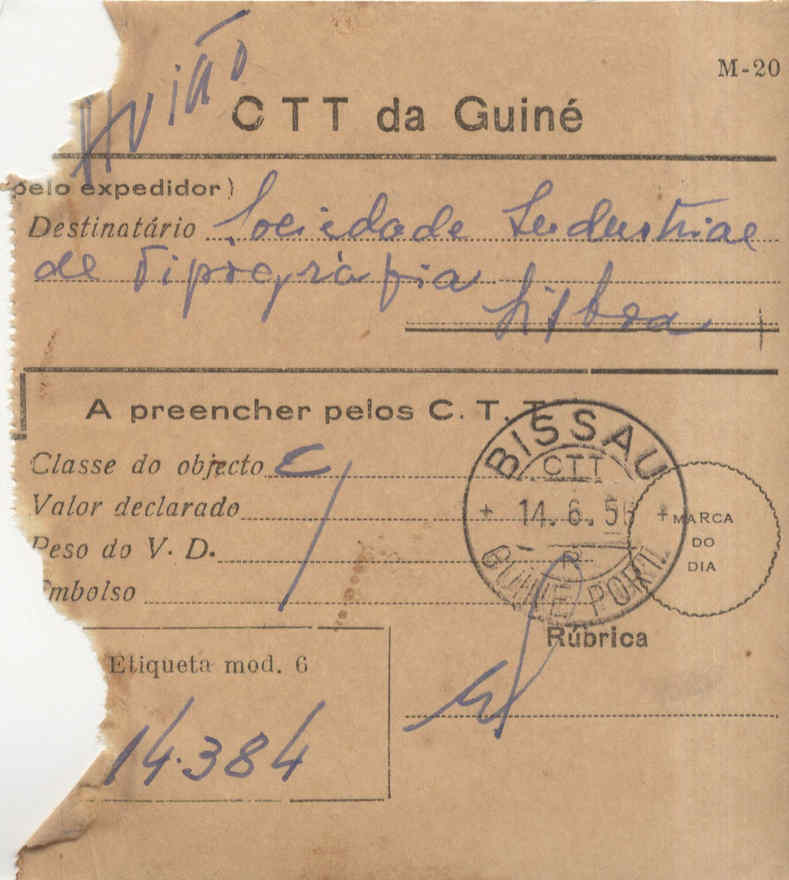 Avião
M-20
CTT da Guiné
pelo expedidor)
Destinatário Sociedade Industrial
de Tipografia
Lisboa
A preencher pelos C. T. T.
Classe do objecto C
Valor declarado
Peso do V. D.
Embolso
BISSAU
CTT
14. 6. 5
GUINÉ PORT
MARCA
DO
DIA
Rúbrica
Etiqueta mod. 6
14.384